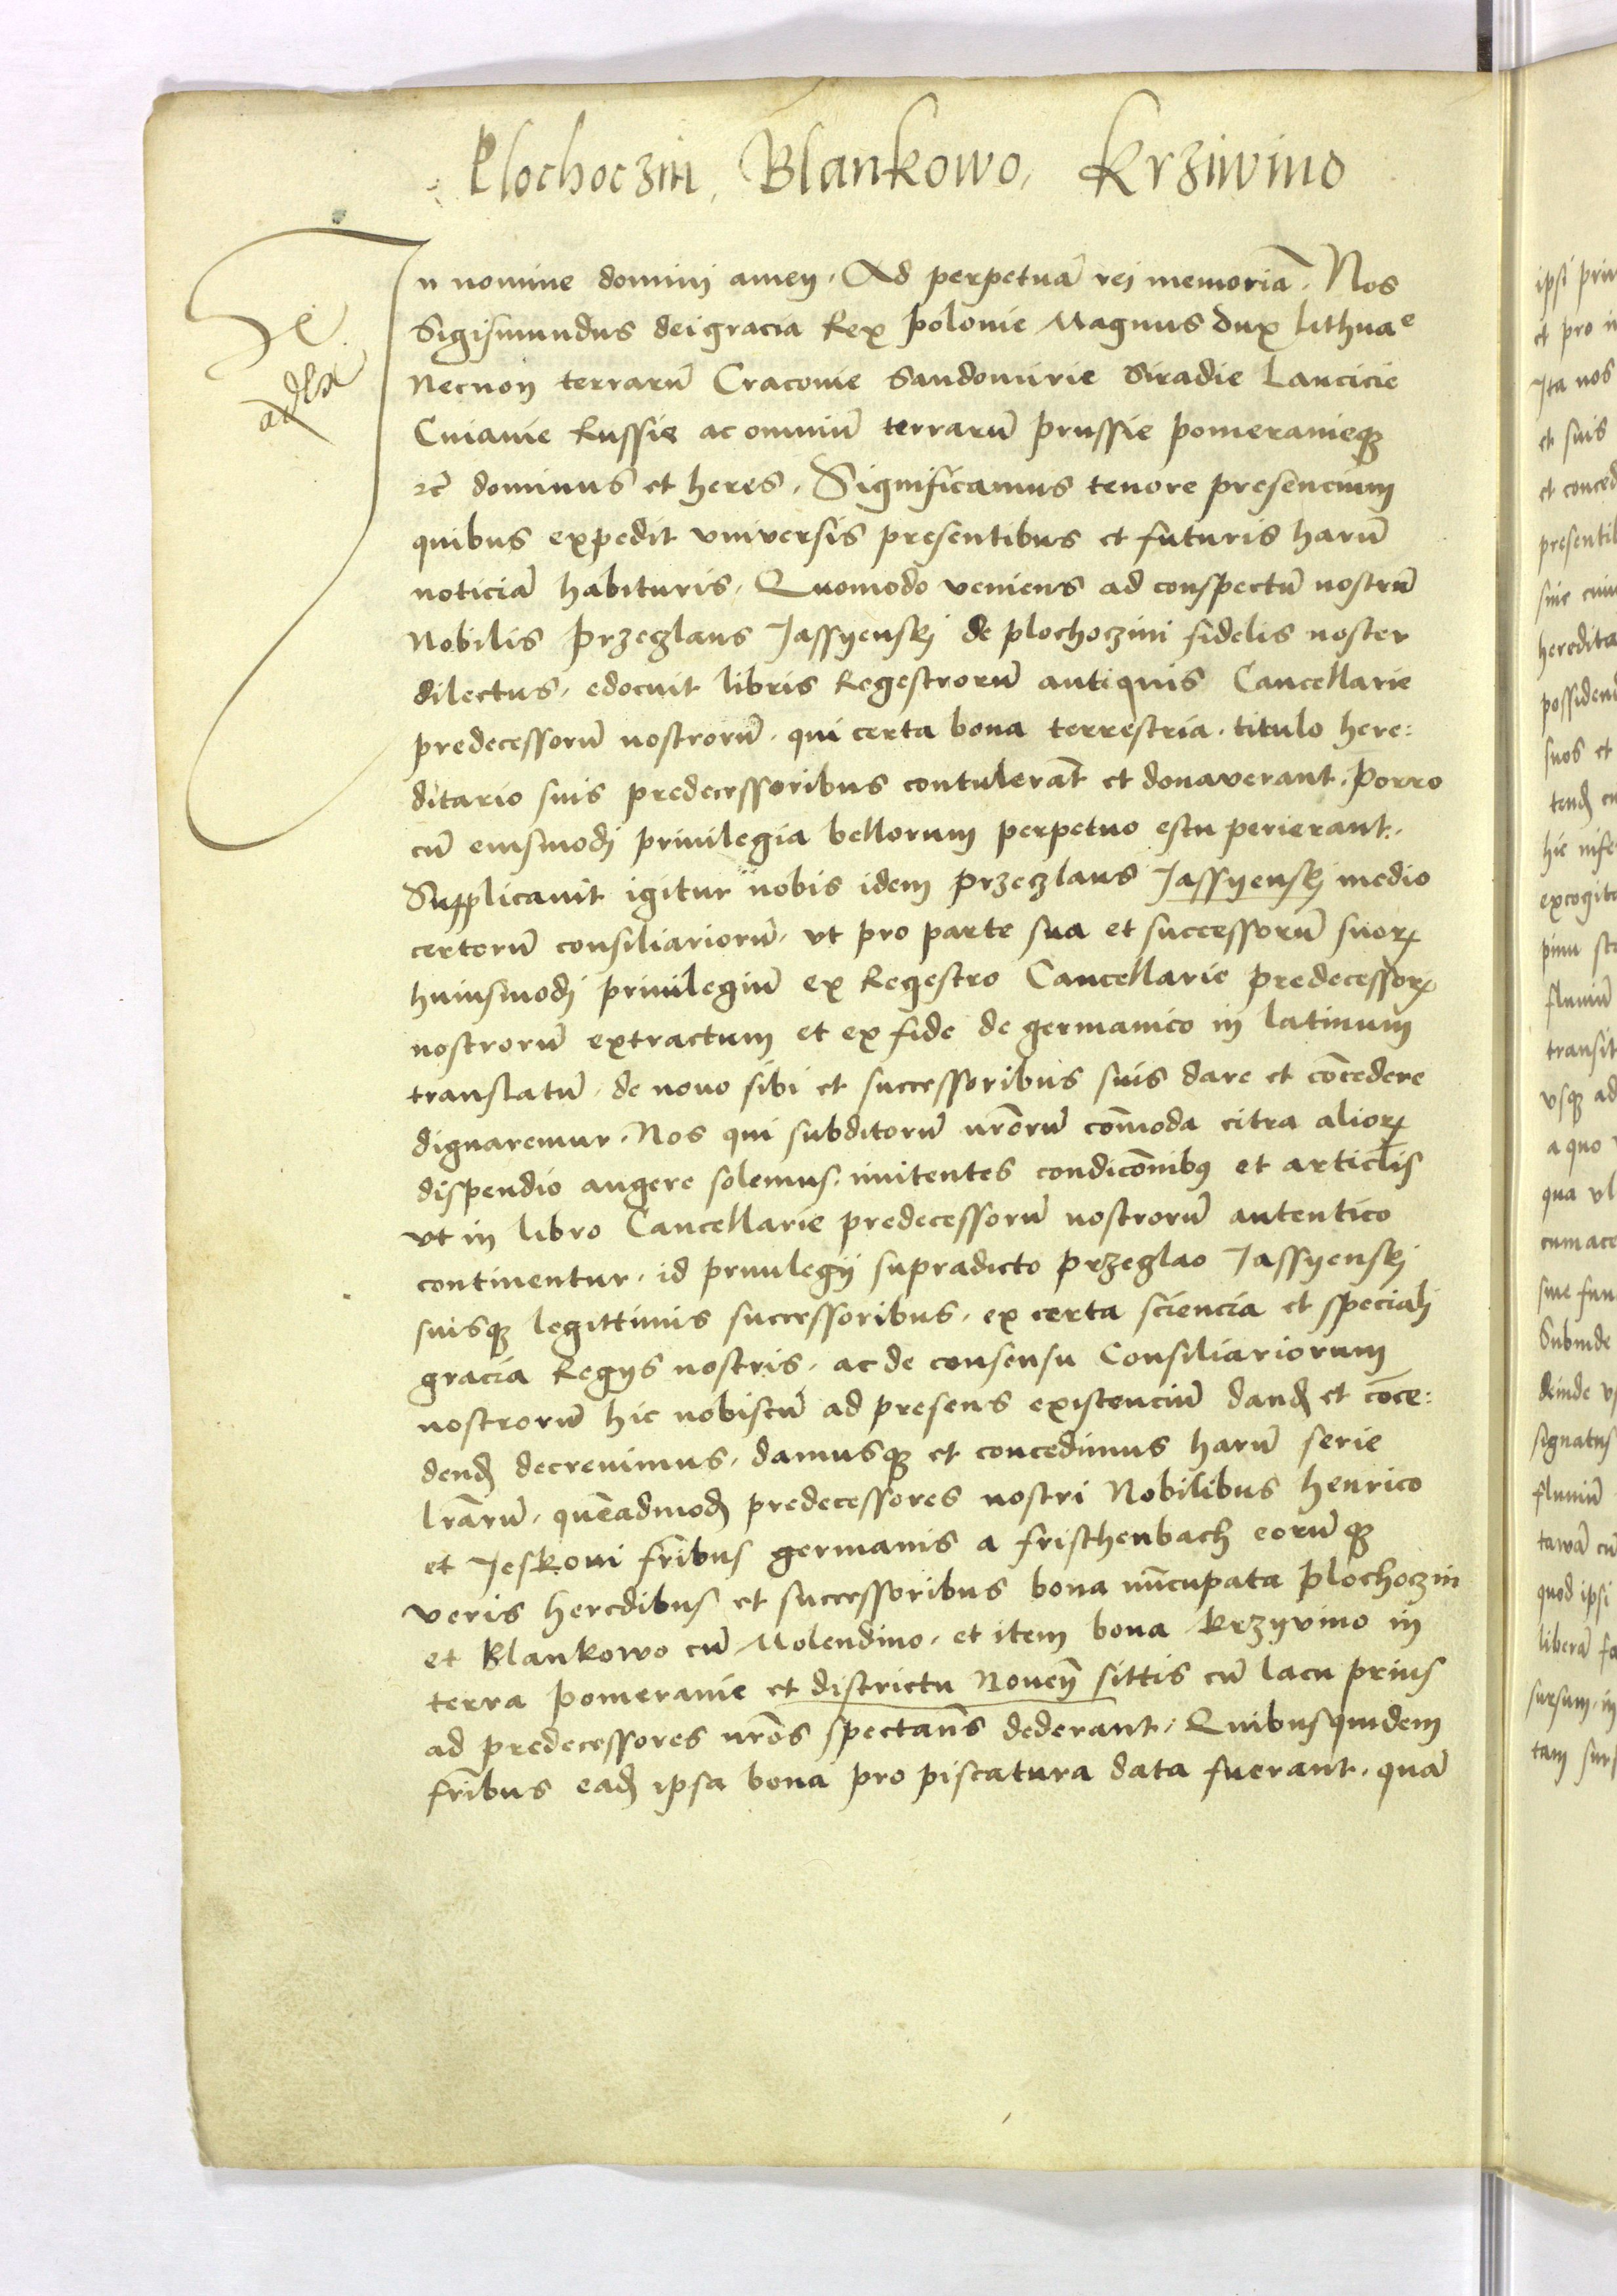 Plochoczin, Blankowo, Krziwino
In nomine dominj amen. Ad perpetuā rej memoriā. Nos
Sigismundus dei gracia Rex polonie Magnus dux Lithuaᵉ
Necnon terrarū Cracovie Sandomirie Siradie Lancicie
Cuiavie Russie ac omniū terrarū prussie pomeranieqꝫ
⁊c̄ dominus et heres. Significamus tenore presencium
quibus expedit vniversis presentibus et futuris harū
noticiā habituris. Quomodo veniens ad conspectū nostrū
Nobilis przeczlaus Jassyenskj de plochoczini fidelis noster
dilectus. edocuit libris Regestrorū antiquis Cancellarie
predecessorū nostrorū. qui certa bona terrestria. titulo here:
ditario suis predecessoribus contulerāt et donaverant. porro
cū eiusmodj privilegia bellorum perpetuo estu perierant.
Supplicavit igitur nobis idem przeczlaus Jassyenskj medio
certorū consiliariorū. vt pro parte sua et successorū suorꝝ
huiusmodj privilegiū ex Regestro Cancellarie predecessorꝝ
nostrorū extractum et ex fide de germanico in latinum
translatū. de novo sibi et successoribus suis dare et cōcedere
dignaremur. Nos qui subditorū nr̄orū cōmoda citra aliorꝝ
dispendio augere solemus. innitentes condicōnibꝰ et articl̄is
vt in libro Cancellarie predecessorū nostrorū autentico
continentur. id privilegij supradicto przeczlao Jassyenskj
suisqꝫ legittimis successoribus. ex certa sciencia et specialj
gracia Regijs nostris. ac de consensu Consiliariorum
nostrorū hic nobiscū ad presens existenciū dand̄ et cōce:
dend̄ decrevimus. damusqꝫ et concedimus harū serie
lr̄arū. quēadmod̄ predecessores nostri Nobilibus henrico
et Jeskoni fribus germanis a frischenbach eorūqꝫ
veris heredibus et successoribus bona nūcupata plochoczin
et Blankowo cū Molendino. et item bona Krzyvino in
terra pomeranie et districtu Noveñ sittis cū lacu prius
ad predecessores nr̄os spectans dederant. Quibusquidem
fribus ead̄ ipsa bona pro piscatura data fuerant. quā